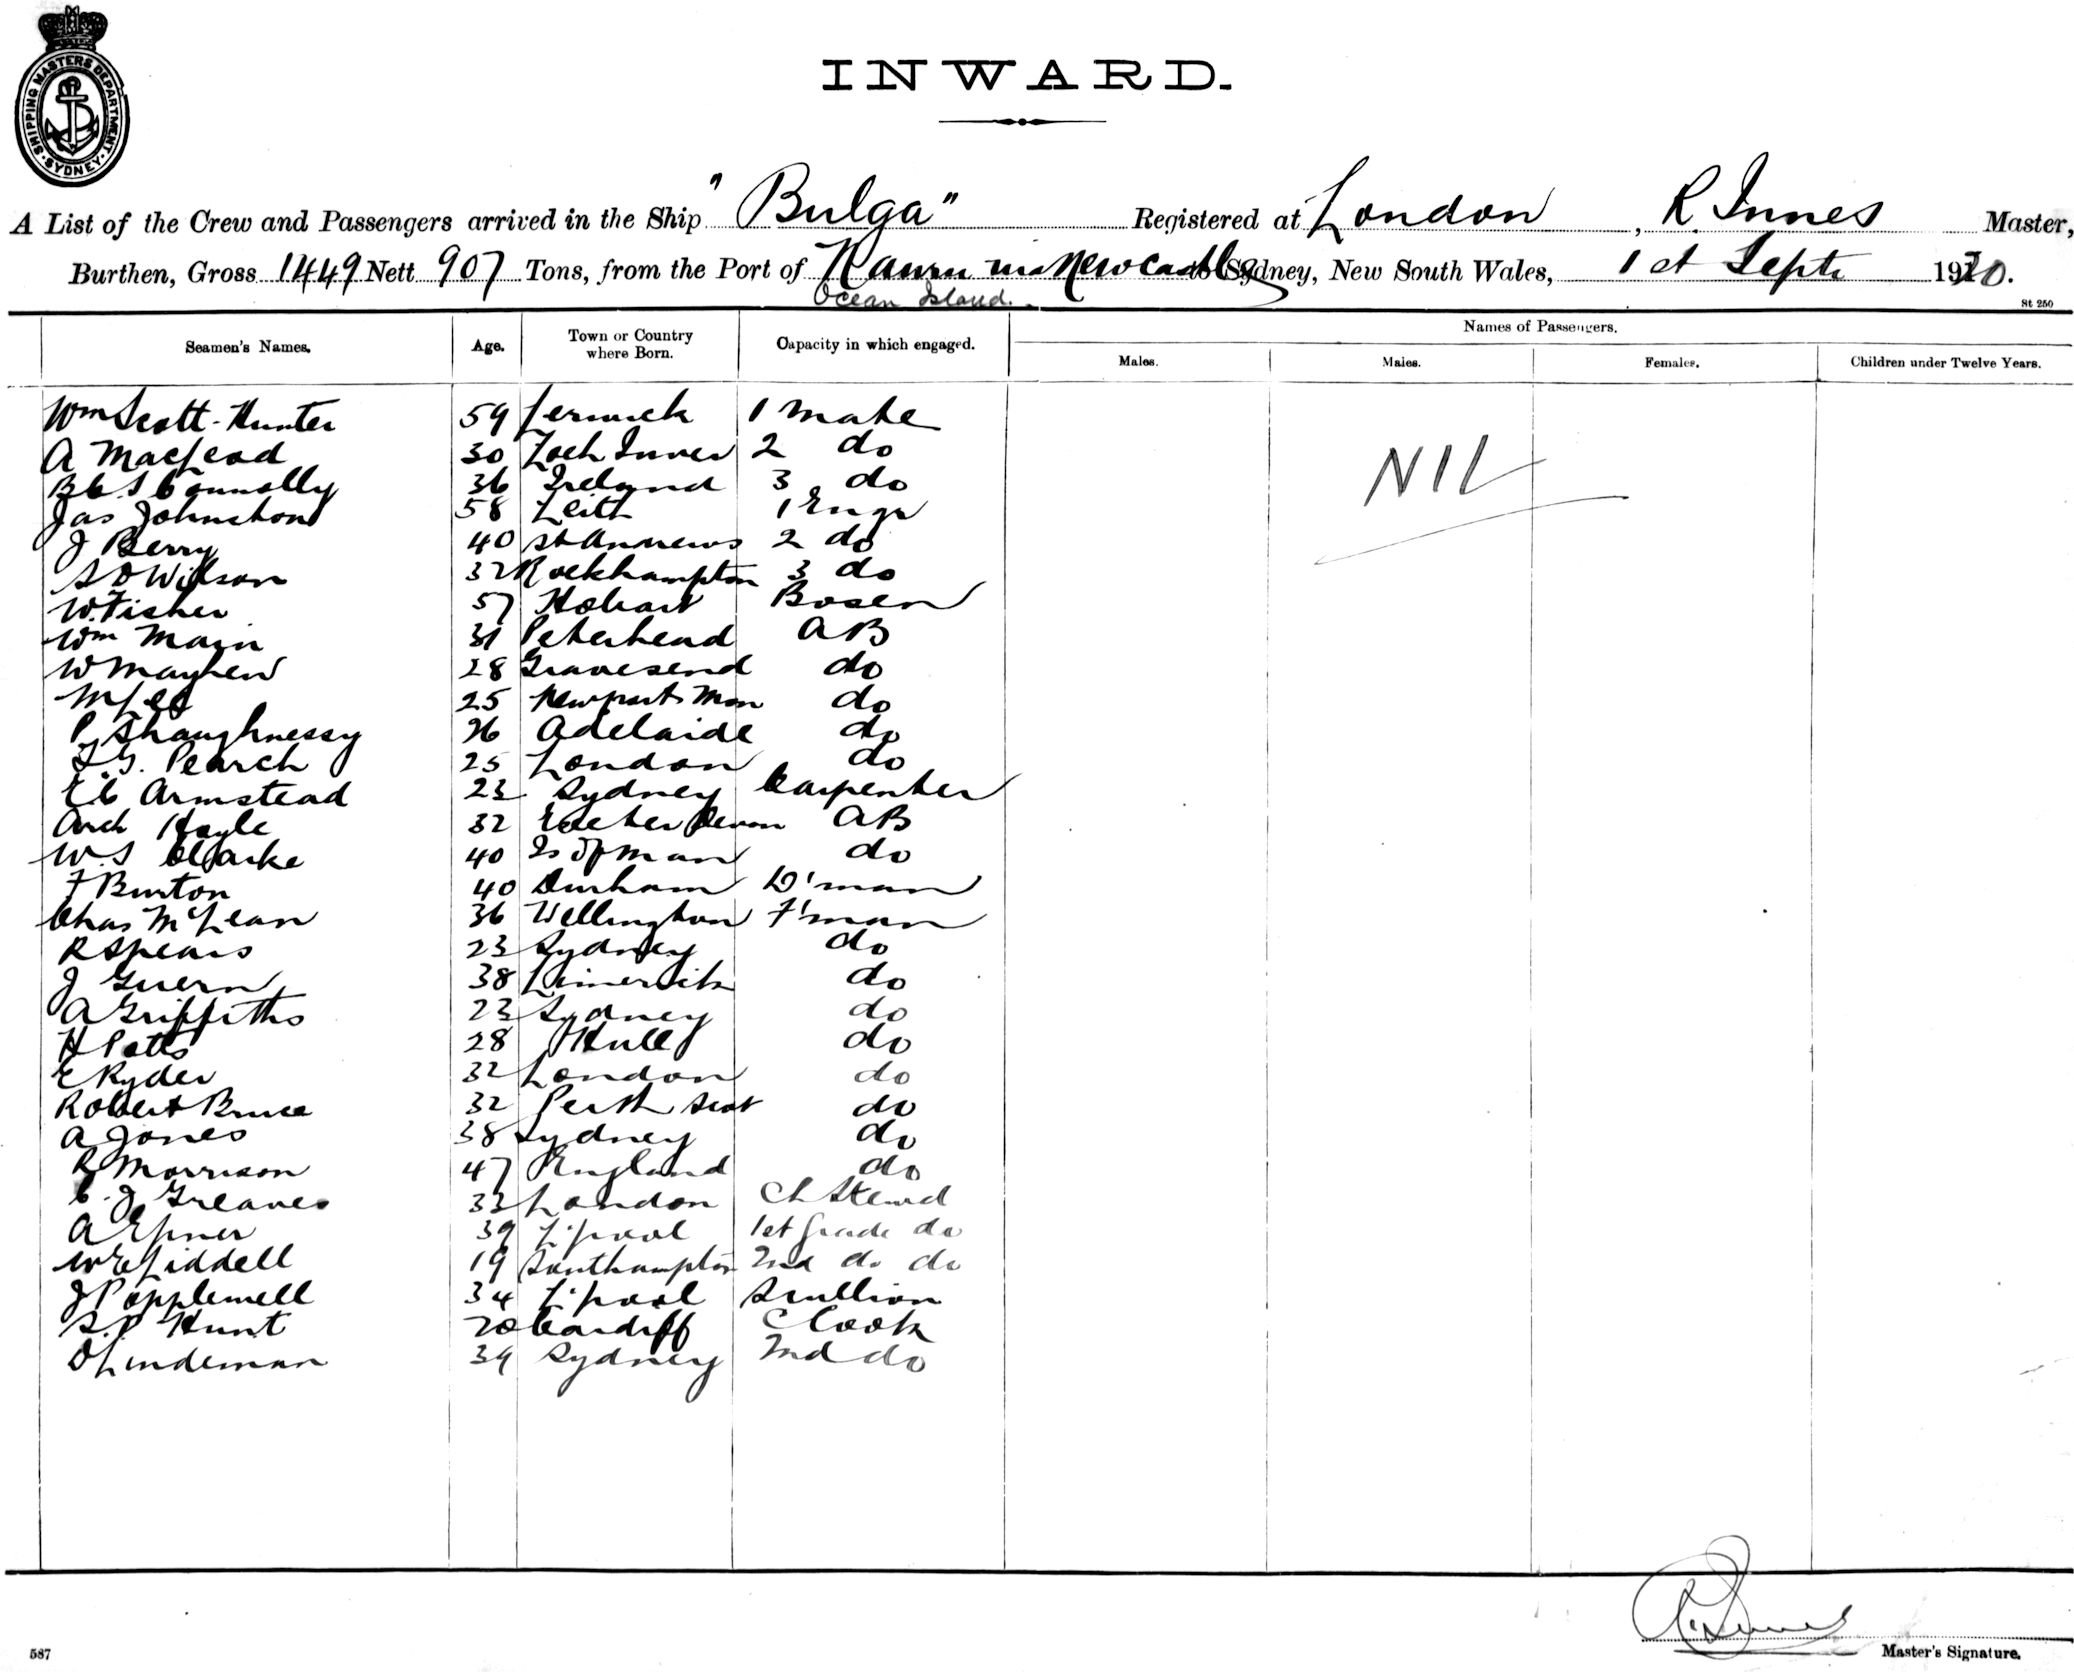 SHIPPING MASTERS DEPARTMENT SYDNEY
INWARD.
A List of the Crew and Passengers arrived in the Ship "Bulga" Registered at London, R. Innes Master,
Burthen, Gross 1449 Nett 907 Tons, from the Port of via Newcastle Sydney, New South Wales, 1st Septr 1920.
Ocean Island.
St 250
Seamen's Names. Age. Town or Country where Born. Capacity in which engaged. Names of Passengers.
Males. Males. Females. Children under Twelve Years.
NIL
Wm Scott-Hunter 59 Lerwick 1 Mate
A MacLeod 30 Loch Inver 2 do
Connolly 36 Ireland 3 do
Jas Johnston 58 Leith 1 Engr
J Berry 40 St Andrews 2 do
S D Wilson 32 Rockhampton 3 do
W. Fisher 57 Hobart Bosen
Wm Main 31 Peterhead AB
W Mayhew 28 Gravesend do
M Lee 25 Newport Mon do
P Shaughnessy 26 Adelaide do
G. Pearch 25 London do
E C Armstead 23 Sydney Carpenter
Arch Hoyle 32 Exeter Devon AB
W. S Clarke 40 Is of Man do
F Burton 40 Durham D'man
Chas McLean 36 Wellington F'man
R Spears 23 Sydney do
J Guern 38 Limerick do
A Griffiths 23 Sydney do
H Potts 28 Hull do
E Ryder 32 London do
Robert Bruce 32 Perth Scot do
A Jones 38 Sydney do
R Morrison 47 England do
C. J Greaves 33 London Ch Stewd
A 39 L'pool 1st Grade do
W E Liddell 19 Southampton 2nd do do
J Popplewell 34 L'pool Scullion
S. P Hunt 20 Cardiff C Cook
O Lindeman 39 Sydney 2nd do
R. Innes
Master's Signature.
587